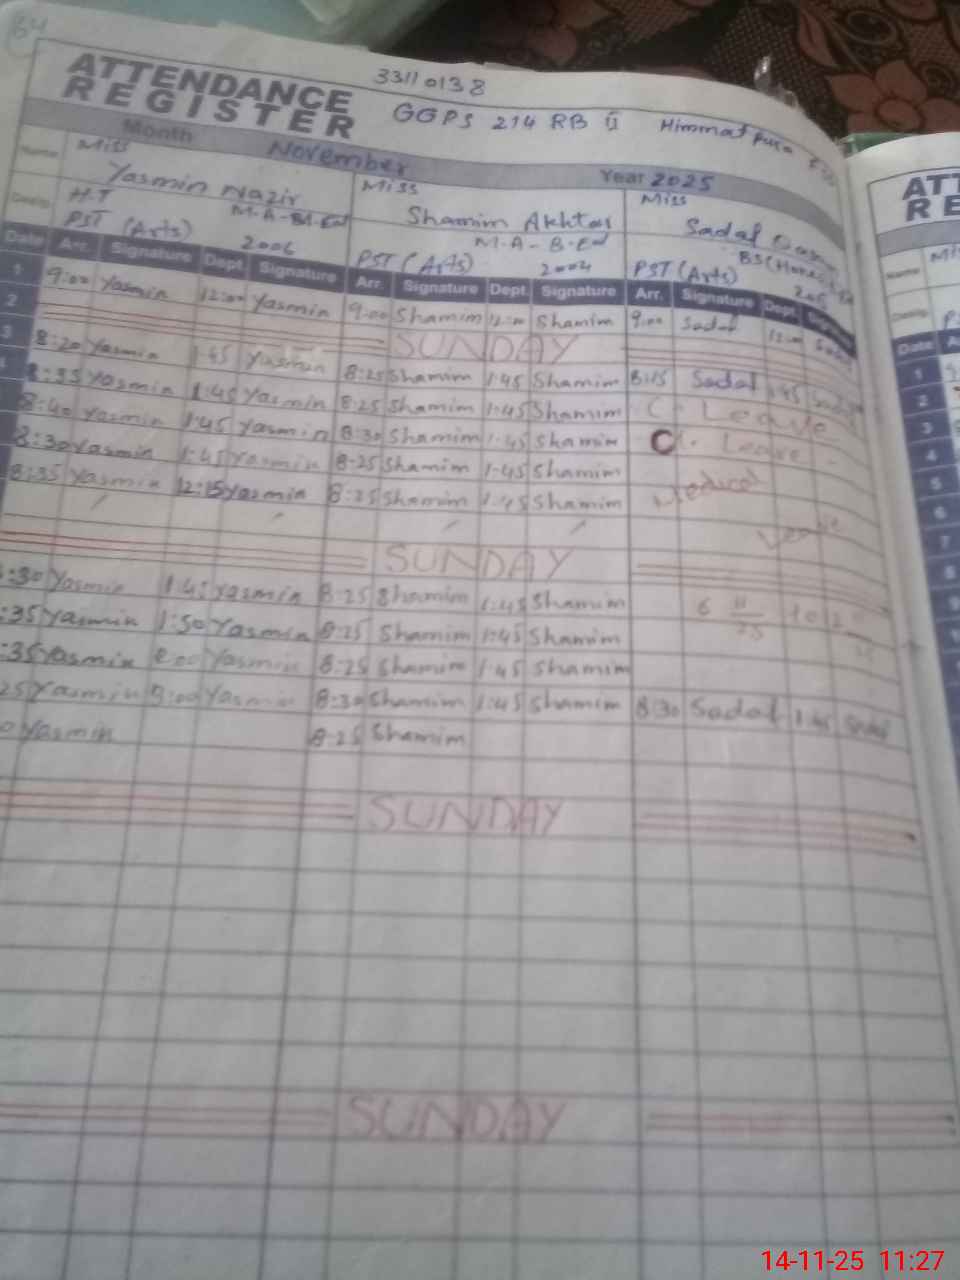 84
33110138
ATTENDANCE
REGISTER
GGPS 214 RB II Himmat Pura
Month November Year 2025
Name Miss Yasmin Nazir Miss Shamim Akhtar Miss Sadaf
Desig: H.T M.A-B.Ed M.A-B.Ed BS(Hons)
PST (Arts) 2006 PST (Arts) 2004 PST (Arts)
Date Arr. Signature Dept. Signature Arr. Signature Dept. Signature Arr. Signature Dept. Signature
1 9:00 Yasmin 12:00 Yasmin 9:00 Shamim 12:00 Shamim 9:00 Sadaf 12:00 Sadaf
2 SUNDAY
3 8:20 Yasmin 1:45 Yasmin 8:25 Shamim 1:45 Shamim 8:15 Sadaf 1:45 Sadaf
4 8:35 Yasmin 1:45 Yasmin 8:25 Shamim 1:45 Shamim C. Leave
8:40 Yasmin 1:45 Yasmin 8:30 Shamim 1:45 Shamim C. Leave
8:30 Yasmin 1:45 Yasmin 8:25 Shamim 1:45 Shamim Medical
8:35 Yasmin 12:15 Yasmin 8:25 Shamim 1:45 Shamim
SUNDAY
:30 Yasmin 1:45 Yasmin 8:25 Shamim 1:45 Shamim
:35 Yasmin 1:50 Yasmin 8:25 Shamim 1:45 Shamim
:35 Yasmin 2:00 Yasmin 8:25 Shamim 1:45 Shamim
25 Yasmin Yasmin 8:30 Shamim 1:45 Shamim 8:30 Sadaf 1:45 Sadaf
0 Yasmin 8:25 Shamim
SUNDAY
SUNDAY
ATT
RE
Name Mis
Desig:
Date A
1
2
3
4
5
6
7
8
9
14-11-25 11:27